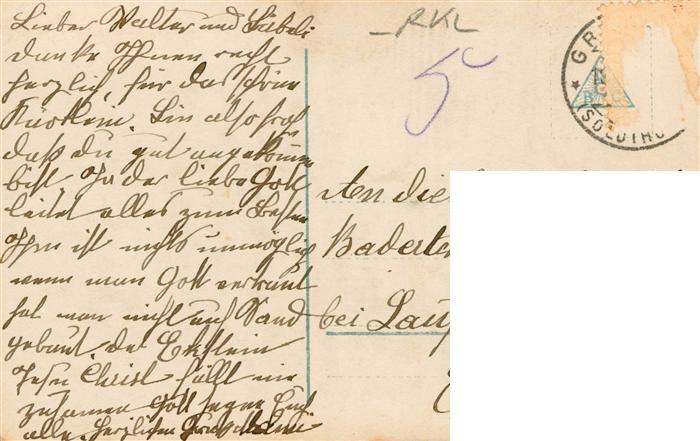 Lieber Walter und Liebeli
danke Ihnen recht
herzlich, für das schöne
Kärtlein. Bin also froh
daß du gut angekommen
bist. Ja der liebe Gott
leitet alles zum Besten
Ihm ist nichts unmöglich
wenn man Gott vertraut
hat man nicht auf Sand
gebaut der Eckstein
Jesu Christ hällt nur
zusamen Gott segne Euch
alle. Herzlichen Gruss
RKL
5
GR
(SOLOTHU
An die
Badert
bei Lauf